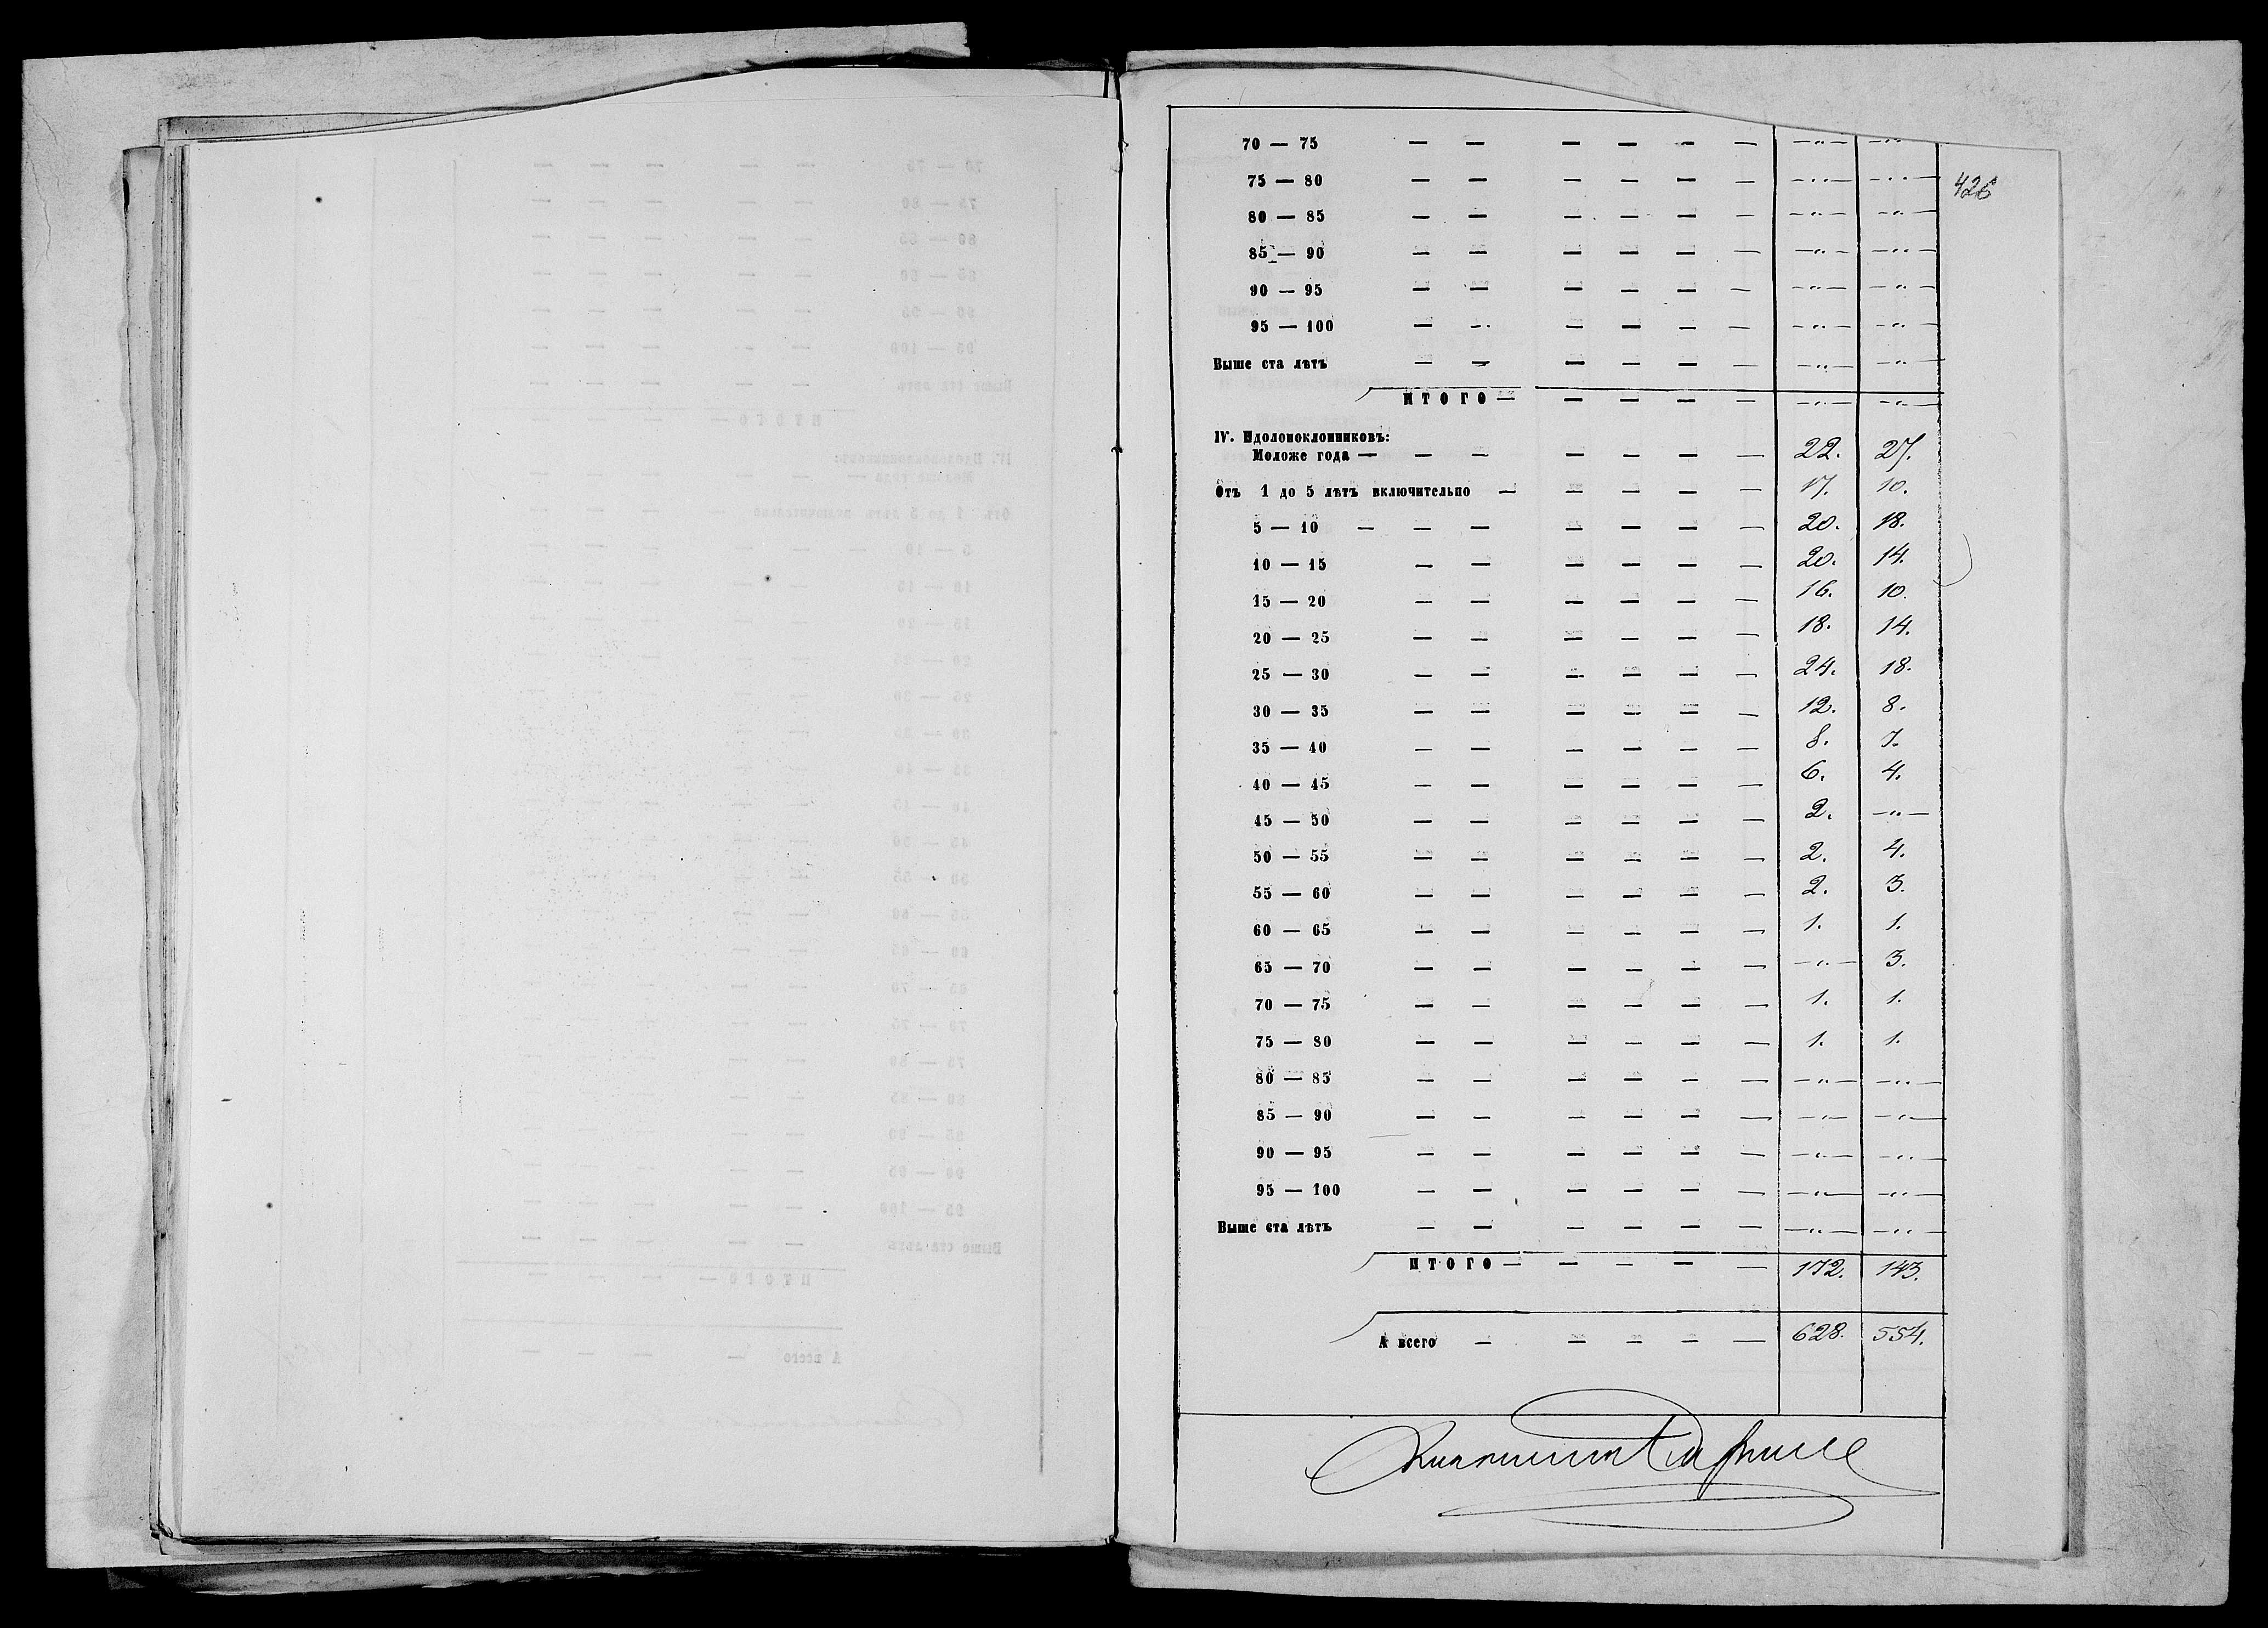 426
70 — 75 — — — — — — —"— —"—
75 — 80 — — — — — — —"— —"—
80 — 85 — — — — — — —"— —"—
85 — 90 — — — — — — —"— —"—
90 — 95 — — — — — — —"— —"—
95 — 100 — — — — — — —"— —"—
Выше ста лѣтъ — — — — — — —"— —"—
ИТОГО — — — — — —"— —"—
IV. Идолопоклонниковъ:
Моложе года — — — — — — — 22. 27.
Отъ 1 до 5 лѣтъ включительно — — — — — 17. 10.
5 — 10 — — — — — — — 20. 18.
10 — 15 — — — — — — 20. 14.
15 — 20 — — — — — — 16. 10.
20 — 25 — — — — — — 18. 14.
25 — 30 — — — — — — 24. 18.
30 — 35 — — — — — — 12. 8.
35 — 40 — — — — — — 8. 7.
40 — 45 — — — — — — 6. 4.
45 — 50 — — — — — — 2. —"—
50 — 55 — — — — — — 2. 4.
55 — 60 — — — — — — 2. 3.
60 — 65 — — — — — — 1. 1.
65 — 70 — — — — — — —"— 3.
70 — 75 — — — — — — 1. 1.
75 — 80 — — — — — — 1. 1.
80 — 85 — — — — — — —"— —"—
85 — 90 — — — — — — —"— —"—
90 — 95 — — — — — — —"— —"—
95 — 100 — — — — — — —"— —"—
Выше ста лѣтъ — — — — — — —"— —"—
ИТОГО — — — — — 172. 143.
А всего — — — — — 628. 554.